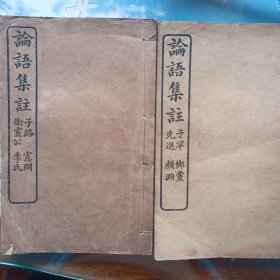 論語集註
子罕 鄉黨
先進 顏淵
論語集註
子路 憲問
衛靈公 季氏